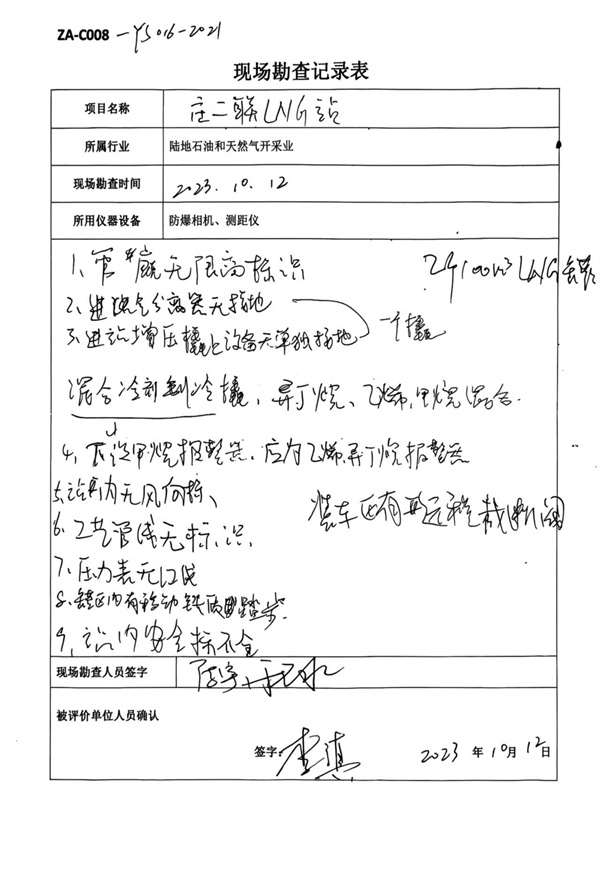 ZA-C008 -YS016-2021
现场勘查记录表
项目名称 庄二联LNG站
所属行业 陆地石油和天然气开采业
现场勘查时间 2023.10.12
所用仪器设备 防爆相机、测距仪
1、管廊无限高标识
2个100m³LNG
2、进现场分离器无接地
3、进站增压撬上设备无单独接地
一个撬
混合冷剂制冷撬，异丁烷、乙烯、甲烷混合.
4、下设甲烷报警器，应为乙烯异丁烷报警器
5、站内无风向标、
装车区有 远程截断阀
6、工艺管线无标识.
7、压力表无红线
8、罐区内有移动 踏步.
9、站内安全标不全
现场勘查人员签字
被评价单位人员确认
签字： 2023 年 10 月 12 日